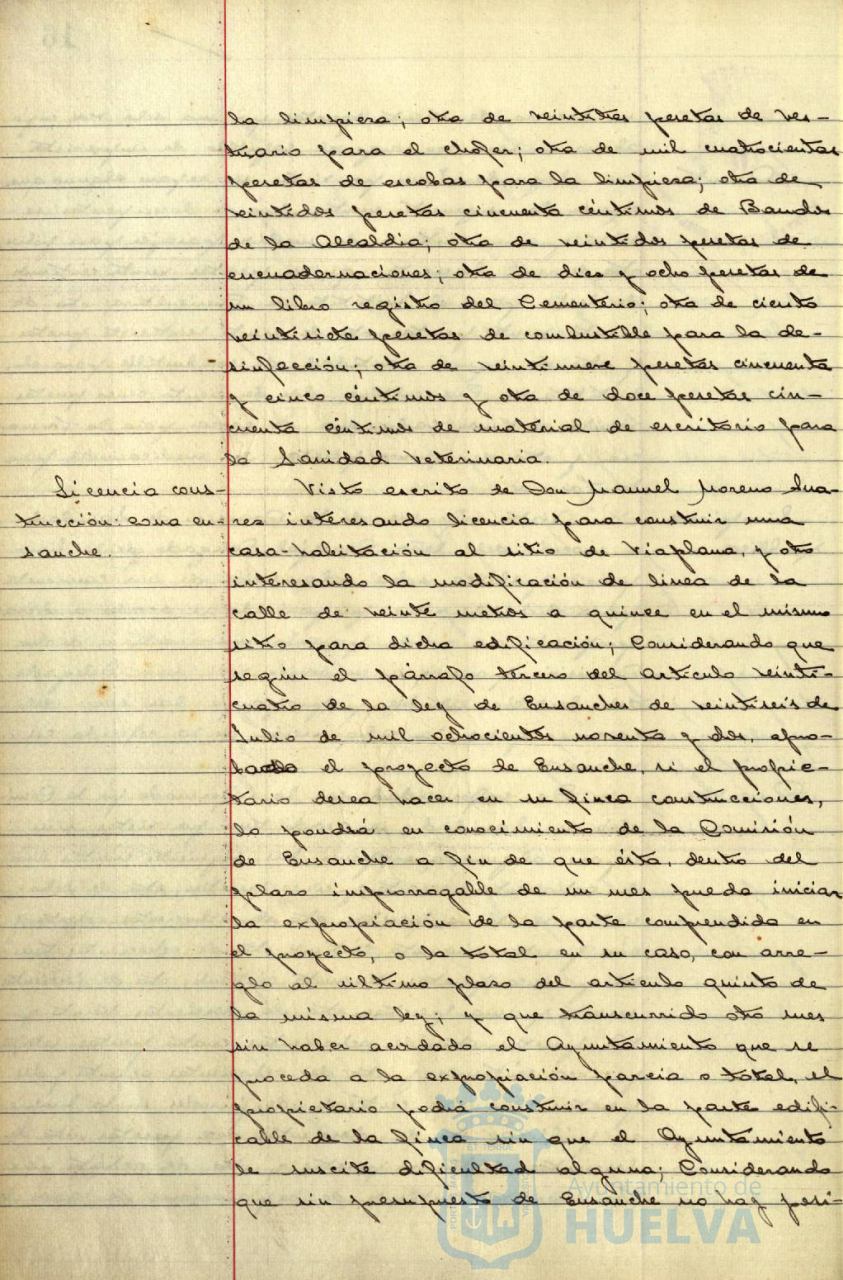 la limpieza; otra de veintitres pesetas de ves-
tuario para el chofer; otra de mil cuatrocientas
pesetas de escobas para la limpieza; otra de
veintidos pesetas cincuenta céntimos de Bandos
de la Alcaldia; otra de veintidos pesetas de
encuadernaciones; otra de diez y ocho pesetas de
un libro registro del Cementerio; otra de ciento
veintisiete pesetas de combustible para la de-
sinfección; otra de veintinueve pesetas cincuenta
y cinco céntimos y otra de doce pesetas cin-
cuenta céntimos de material de escritorio para
la Sanidad Veterinaria.
Licencia cons-
trucción zona en-
sanche.
Visto escrito de Don Manuel Moreno Sua-
rez interesando licencia para construir una
casa-habitación al sitio de Viaplana, y otro
interesando la modificación de linea de la
calle de veinte metros a quince en el mismo
sitio para dicha edificación; Considerando que
según el párrafo tercero del articulo veinti-
cuatro de la ley de Ensanches de veintiseis de
Julio de mil ochocientos noventa y dos, apro-
bado el proyecto de Ensanche, si el propie-
tario desea hacer en su finca construcciones,
lo pondrá en conocimiento de la Comisión
de Ensanche a fin de que ésta, dentro del
plazo improrrogable de un mes pueda iniciar
la expropiación de la parte comprendida en
el proyecto, o la total en su caso, con arre-
glo al ultimo plazo del articulo quinto de
la misma ley; y que transcurrido otro mes
sin haber acordado el Ayuntamiento que se
proceda a la expropiación parcia o total, el
propietario podrá construir en la parte edifi-
cable de la finca sin que el Ayuntamiento
le suscite dificultad alguna; Considerando
que sin presupuesto de Ensanche no hay posi-
Ayuntamiento de
HUELVA